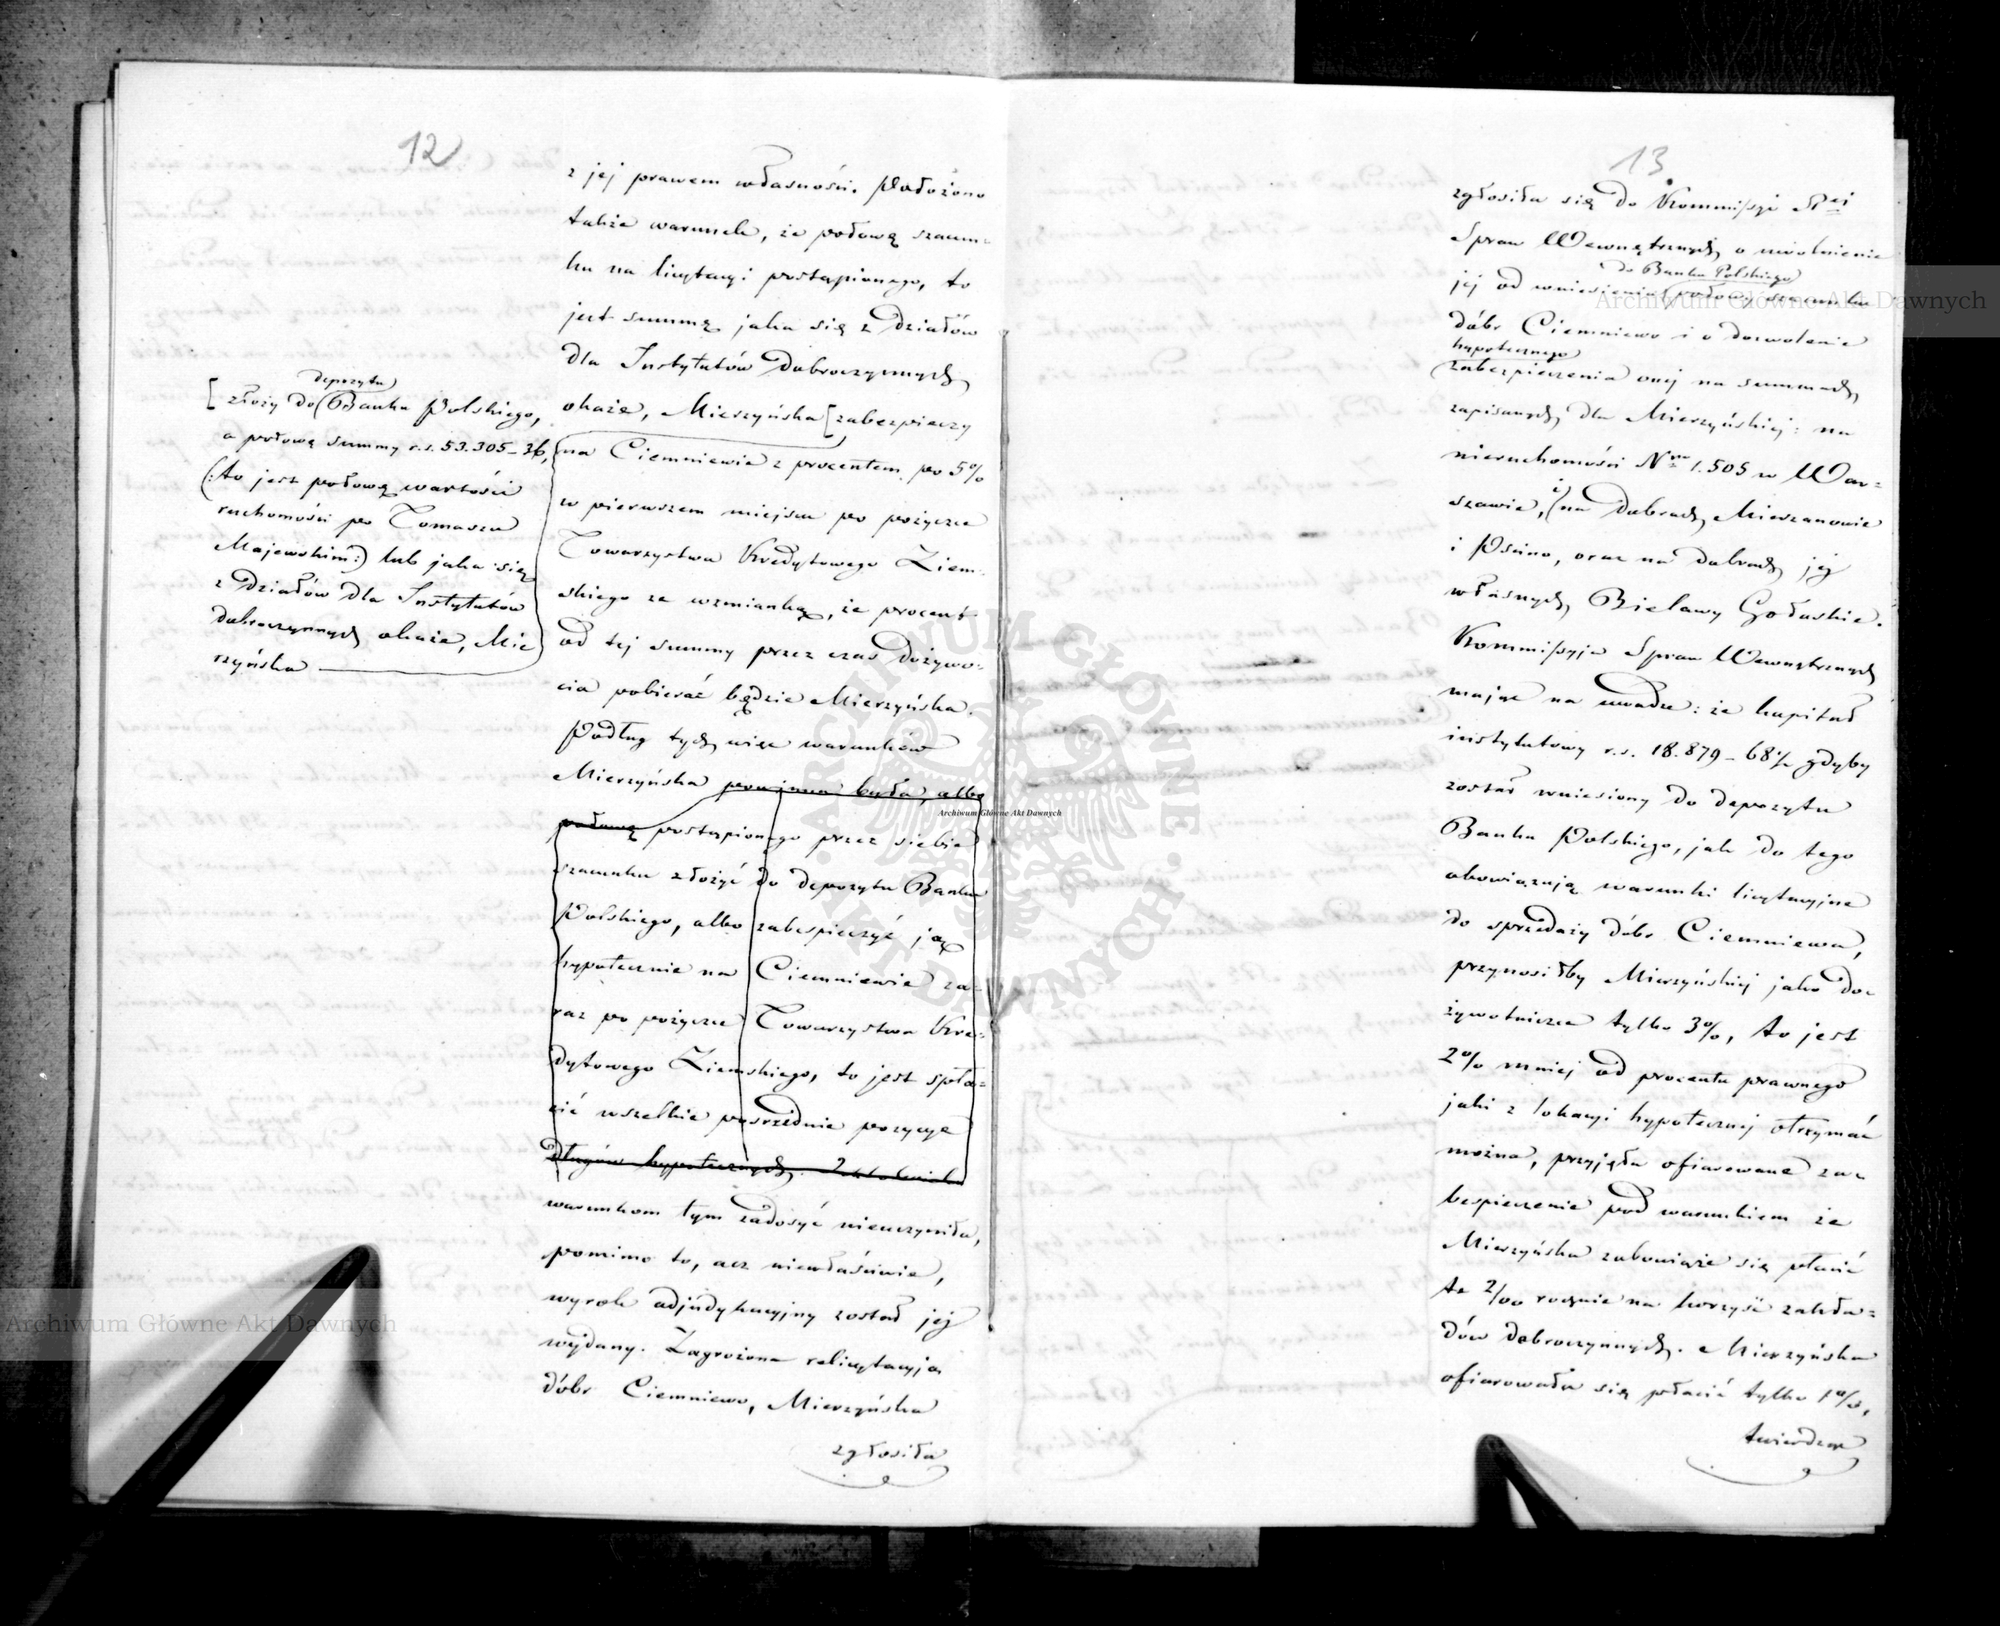 12
z jej prawem własności. Położono
także warunek, że połowę szacun-
ku na licytacyi postąpionego, to
jest summę jaka się z działów
dla Instytutów Dobroczynnych
okaże, Mierzyńska [zabezpieczy
na Ciemniewie z procentem po 5%
w pierwszem miejscu po pożyczce
Towarzystwa Kredytowego Ziem-
skiego ze wzmianką, że procent
od tej summy przez czas dożywo-
cia pobierać będzie Mierzyńska.
Podług tych więc warunków
Mierzyńska powinna była, albo
połowę postąpionego przez siebie
szacunku złożyć do depozytu Banku
Polskiego, albo zabespieczyć ją
hypotecznie na Ciemniewie za-
raz po pożyczce Towarzystwa Kre-
dytowego Ziemskiego, to jest spła-
cić wszelkie pośrednie pozycye
długów hypotecznych.
warunkom tym zadosyć nieuczyniła,
pomimo to, acz niewłaściwie,
wyrok adjudykacyjny został jej
wydany. Zagrożona relicytacyją
dóbr Ciemniewo, Mierzyńska
zgłosiła
depozytu
[złoży do Banku Polskiego,
a połowę summy r.s. 53.305-36,
(:to jest połowę wartości
ruchomości po Tomaszu
Majewskim:) lub jaka się
z działów dla Instytutów
dobroczynnych okaże, Mie
rzyńska
13
zgłosiła się do Kommissyi R ei
Spraw Wewnętrznych o uwolnienie
do Banku Polskiego
jej od wniesienia połowy szacunku
dóbr Ciemniewo i o dozwolenie
hypotecznego
zabezpieczenia onej na summach
zapisanych dla Mierzyńskiej: na
nieruchomości Nro 1.505 w War-
szawie, i na Dobrach Mieszanowie
i Psino, oraz na dobrach jej
własnych Bielawy Gołuskie.
Kommissyja Spraw Wewnętrznych
mając na uwadze: że kapitał
instytutowy r.s. 18.879-68½ gdyby
został wniesiony do depozytu
Banku Polskiego, jak do tego
obowiązują warunki licytacyjne
do sprzedaży dóbr Ciemniewa,
przynosiłby Mierzyńskiej jako do-
żywotniczce tylko 3%, to jest
2% mniej od procentu prawnego
jaki z lokacyi hypotecznej otrzymać
można, przyjęła ofiarowane za-
bespieczenie pod warunkiem że
Mierzyńska zobowiąże się płacić
te 2/00 rocznie na korzyść zakła-
dów dobroczynnych. Mierzyńska
ofiarowała się płacić tylko 1%,
twierdząc
Archiwum Główne Akt Dawnych
Archiwum Główne Akt Dawnych
Archiwum Główne Akt Dawnych
ARCHIWUM GŁÓWNE
AKT DAWNYCH